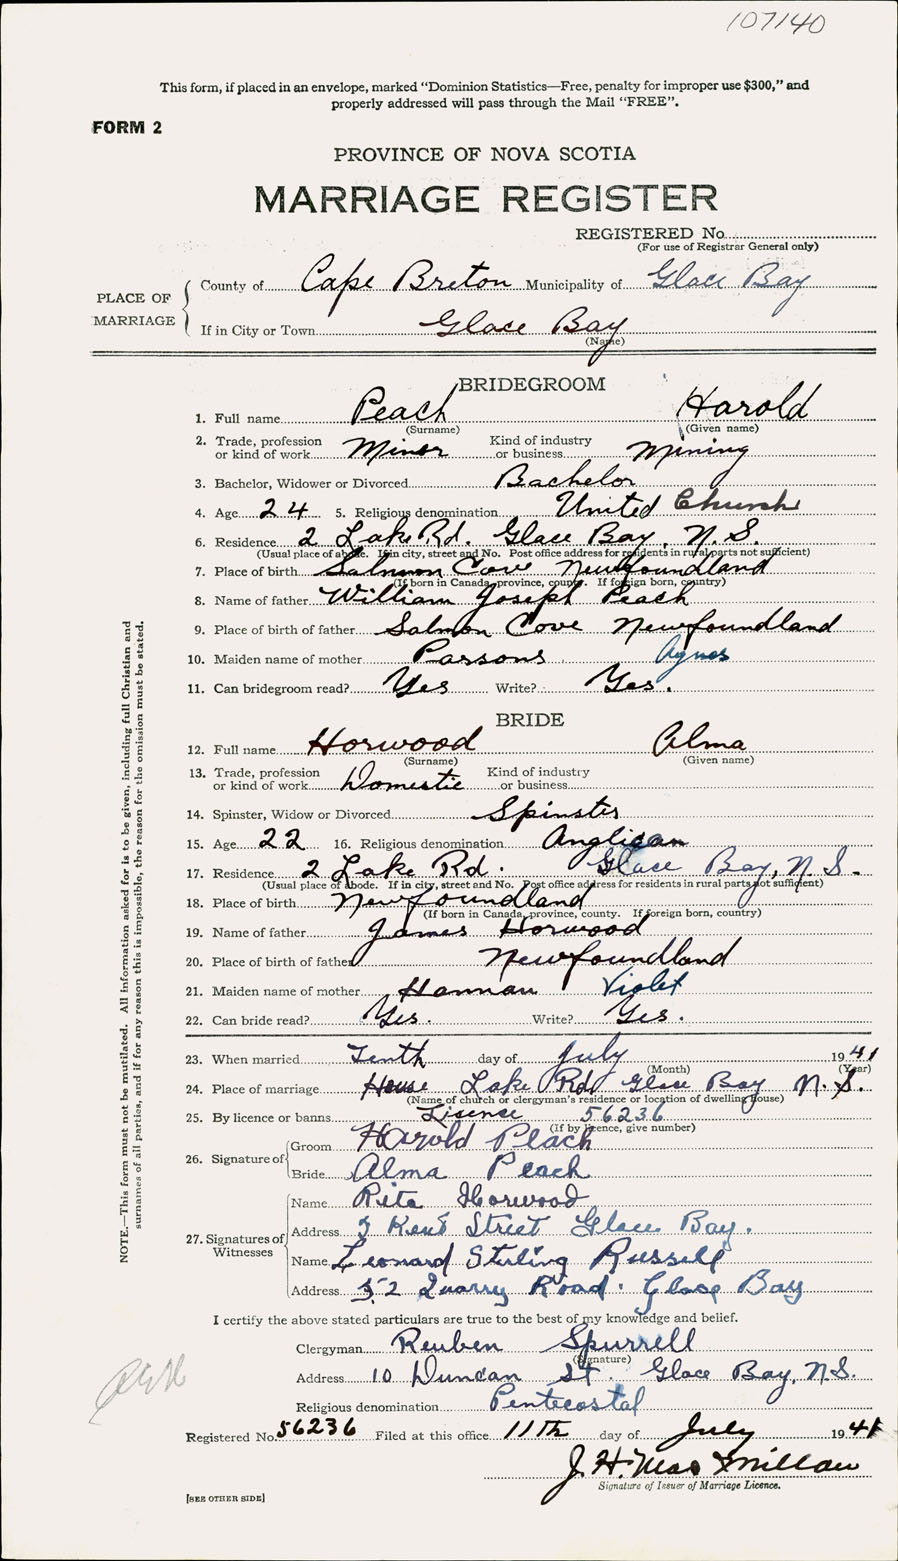 107140
This form, if placed in an envelope, marked “Dominion Statistics—Free, penalty for improper use $300,” and
properly addressed will pass through the Mail “FREE”.
FORM 2
PROVINCE OF NOVA SCOTIA
MARRIAGE REGISTER
REGISTERED No.
(For use of Registrar General only)
PLACE OF MARRIAGE
County of Cape Breton Municipality of Glace Bay
If in City or Town Glace Bay
(Name)
BRIDEGROOM
1. Full name Peach Harold
(Surname) (Given name)
2. Trade, profession or kind of work Miner Kind of industry or business Mining
3. Bachelor, Widower or Divorced Bachelor
4. Age 24 5. Religious denomination United Church
6. Residence 2 Lake Rd. Glace Bay, N.S.
(Usual place of abode. If in city, street and No. Post office address for residents in rural parts not sufficient)
7. Place of birth Salmon Cove Newfoundland
(If born in Canada, province, county. If foreign born, country)
8. Name of father William Joseph Peach
9. Place of birth of father Salmon Cove Newfoundland
10. Maiden name of mother Parsons Agnes
11. Can bridegroom read? Yes Write? Yes.
BRIDE
12. Full name Horwood Alma
(Surname) (Given name)
13. Trade, profession or kind of work Domestic Kind of industry or business
14. Spinster, Widow or Divorced Spinster
15. Age 22 16. Religious denomination Anglican
17. Residence 2 Lake Rd. Glace Bay, N.S.
(Usual place of abode. If in city, street and No. Post office address for residents in rural parts not sufficient)
18. Place of birth Newfoundland
(If born in Canada, province, county. If foreign born, country)
19. Name of father James Horwood
20. Place of birth of father Newfoundland
21. Maiden name of mother Hannan Violet
22. Can bride read? Yes. Write? Yes.
23. When married Tenth day of July 1941
(Month) (Year)
24. Place of marriage House Lake Rd Glace Bay N.S.
(Name of church or clergyman's residence or location of dwelling house)
25. By licence or banns Lisence 56236
(If by licence, give number)
26. Signature of
Groom Harold Peach
Bride Alma Peach
27. Signatures of Witnesses
Name Rita Horwood
Address 3 Kent Street Glace Bay.
Name Leonard Sterling Russell
Address 52 Quarry Road. Glace Bay
I certify the above stated particulars are true to the best of my knowledge and belief.
Clergyman Reuben Spurrell
(Signature)
Address 10 Duncan St. Glace Bay, N.S.
Religious denomination Pentecostal
Registered No. 56236 Filed at this office 11th day of July 1941
J. H. MacMillan
Signature of Issuer of Marriage Licence.
[SEE OTHER SIDE]
NOTE.—This form must not be mutilated. All information asked for is to be given, including full Christian and
surnames of all parties, and if for any reason this is impossible, the reason for the omission must be stated.